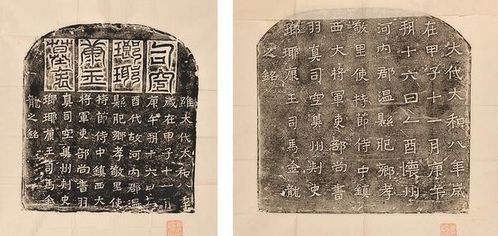 司空
瑯琊
康王
墓表
維大代太和八年
歲在甲子十一月
庚午朔十六日乙
酉代故河內郡溫
縣肥鄉孝敬里使
持節侍中鎮西大
將軍吏部尚書羽
真司空冀州刺史
瑯琊康王司馬金
龍之銘
大代大和八年歲
在甲子十一月庚午
朔十六日乙酉懷州
河內郡溫縣肥鄉孝
敬里使持節侍中鎮
西大將軍吏部尚書
羽真司空冀州刺史
瑯琊康王司馬金龍
之銘